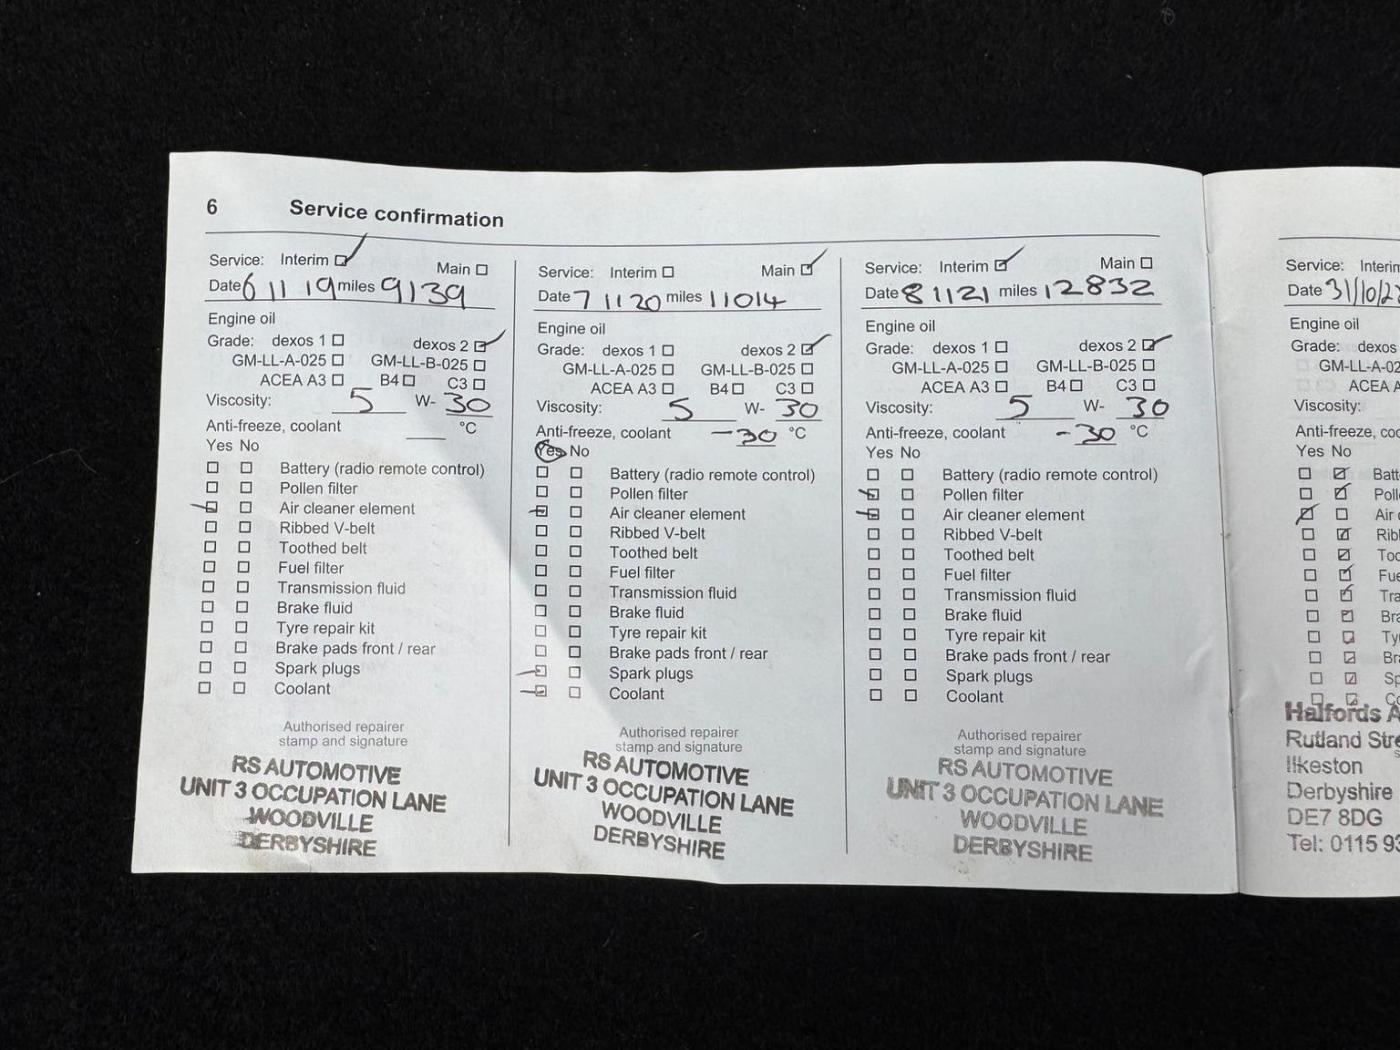 6 Service confirmation
Service: Interim Main
Date 6 11 19 miles 9139
Engine oil
Grade: dexos 1 dexos 2
GM-LL-A-025 GM-LL-B-025
ACEA A3 B4 C3
Viscosity: 5 W- 30
Anti-freeze, coolant °C
Yes No
Battery (radio remote control)
Pollen filter
Air cleaner element
Ribbed V-belt
Toothed belt
Fuel filter
Transmission fluid
Brake fluid
Tyre repair kit
Brake pads front / rear
Spark plugs
Coolant
Authorised repairer
stamp and signature
RS AUTOMOTIVE
UNIT 3 OCCUPATION LANE
WOODVILLE
DERBYSHIRE
Service: Interim Main
Date 7 11 20 miles 11014
Engine oil
Grade: dexos 1 dexos 2
GM-LL-A-025 GM-LL-B-025
ACEA A3 B4 C3
Viscosity: 5 W- 30
Anti-freeze, coolant -30 °C
Yes No
Battery (radio remote control)
Pollen filter
Air cleaner element
Ribbed V-belt
Toothed belt
Fuel filter
Transmission fluid
Brake fluid
Tyre repair kit
Brake pads front / rear
Spark plugs
Coolant
Authorised repairer
stamp and signature
RS AUTOMOTIVE
UNIT 3 OCCUPATION LANE
WOODVILLE
DERBYSHIRE
Service: Interim Main
Date 8 11 21 miles 12832
Engine oil
Grade: dexos 1 dexos 2
GM-LL-A-025 GM-LL-B-025
ACEA A3 B4 C3
Viscosity: 5 W- 30
Anti-freeze, coolant -30 °C
Yes No
Battery (radio remote control)
Pollen filter
Air cleaner element
Ribbed V-belt
Toothed belt
Fuel filter
Transmission fluid
Brake fluid
Tyre repair kit
Brake pads front / rear
Spark plugs
Coolant
Authorised repairer
stamp and signature
RS AUTOMOTIVE
UNIT 3 OCCUPATION LANE
WOODVILLE
DERBYSHIRE
Service: Interim
Date 31/10/2
Engine oil
Grade: dexos
GM-LL-A-02
ACEA A
Viscosity:
Anti-freeze, coo
Yes No
Batt
Poll
Air c
Ribl
Too
Fue
Tra
Bra
Ty
Br
Sp
Co
Halfords A
Rutland Stre
Ilkeston
Derbyshire
DE7 8DG
Tel: 0115 93